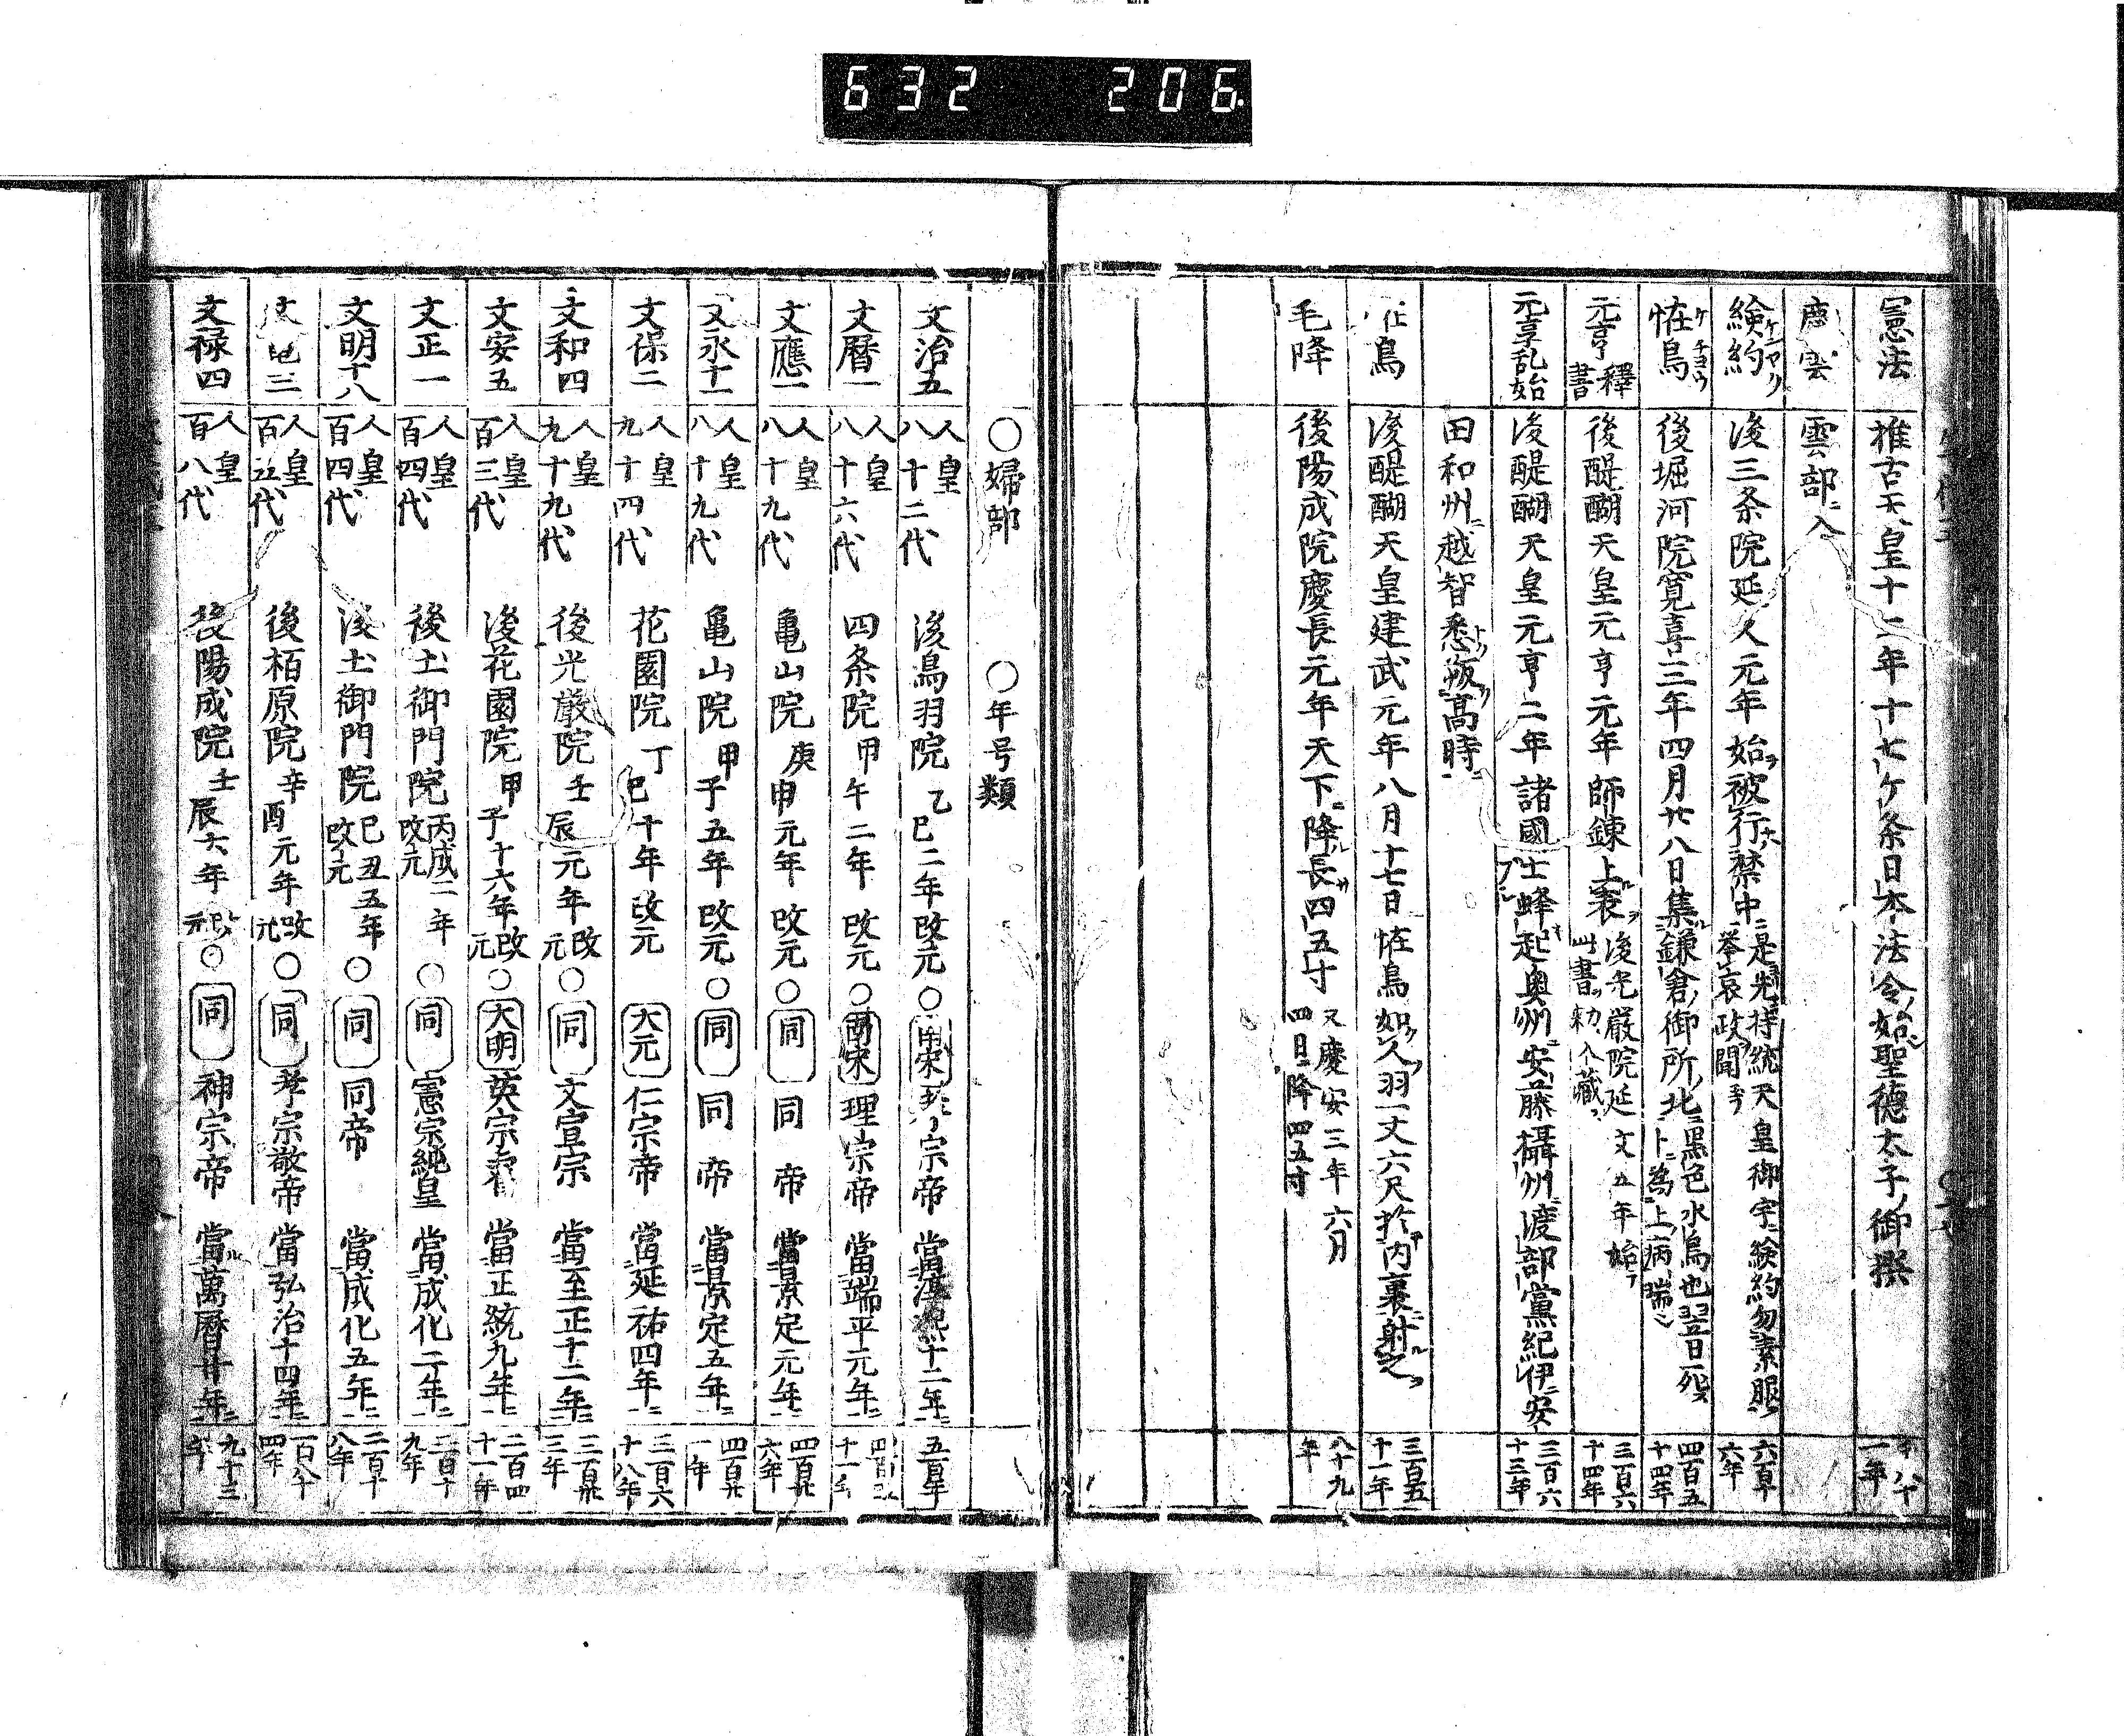 632 206
憲法 推古天皇十二年十七ケ条日本法令ノ始聖徳太子ノ御撰
慶雲 雲部ニ入
儉約 ケンヤク 後三条院延久元年始ヲ被行禁中ニ是先持統天皇御宇儉約勿素服挙哀政聞 六百年 六年
恠鳥 ケチヨウ 後堀河院寛喜三年四月廿八日集鎌倉ノ御所ノ北ニ黒色水鳥也翌日死ト為上病瑞 四百五十四年
元亨釋書 後醍醐天皇元亨元年師錬上表後光厳院延文五年始此書ヲ勅入藏 三百六十四年
元享乱始 後醍醐天皇元亨二年諸國士蜂起奥州ニ安藤攝州ニ渡部黨紀伊ニ安 三百六十三年
田和州ニ越智悉叛高時ニ
恠鳥 後醍醐天皇建武元年八月十七日恠鳥羽一丈六尺於内裏射之 三百五十一年
毛降 後陽成院慶長元年天下降長四五寸又慶安三年六月四日ニ降四五寸 八十九年
○婦部 ○年号類
文治五 人皇八十二代 後鳥羽院 乙巳二年改元○南宋 宗帝 當淳熈十二年ニ 五百年
文暦一 人皇八十六代 四条院 甲午二年改元○南宋 理宗帝 當端平元年ニ
文應一 人皇八十九代 亀山院 庚申元年改元○同 同帝 當景定元年ニ 四百廿六年
文永十一 人皇八十九代 亀山院 甲子五年改元○同 同帝 當景定五年ニ 四百廿一年
文保二 人皇九十四代 花園院 丁巳十年改元 大元 仁宗帝 當延祐四年ニ 三百六十八年
文和四 人皇九十九代 後光嚴院 壬辰元年改元○同 文宣宗 當至正十二年ニ 三百卅三年
文安五 人皇百三代 後花園院 甲子十六年改元○大明 英宗睿 當正統九年ニ 二百四十一年
文正一 人皇百四代 後土御門院 丙戌二年改元○同 憲宗純皇 當成化二年ニ 二百十九年
文明十八 人皇百四代 後土御門院 己丑五年改元○同 同帝 當成化五年ニ 二百十八年
文亀三 人皇百五代 後柏原院 辛酉元年改元○同 孝宗敬帝 當弘治十四年ニ 一百八十四年
文禄四 人皇百八代 後陽成院 壬辰六年改元○同 神宗帝 當萬暦廿年ニ 九十三年